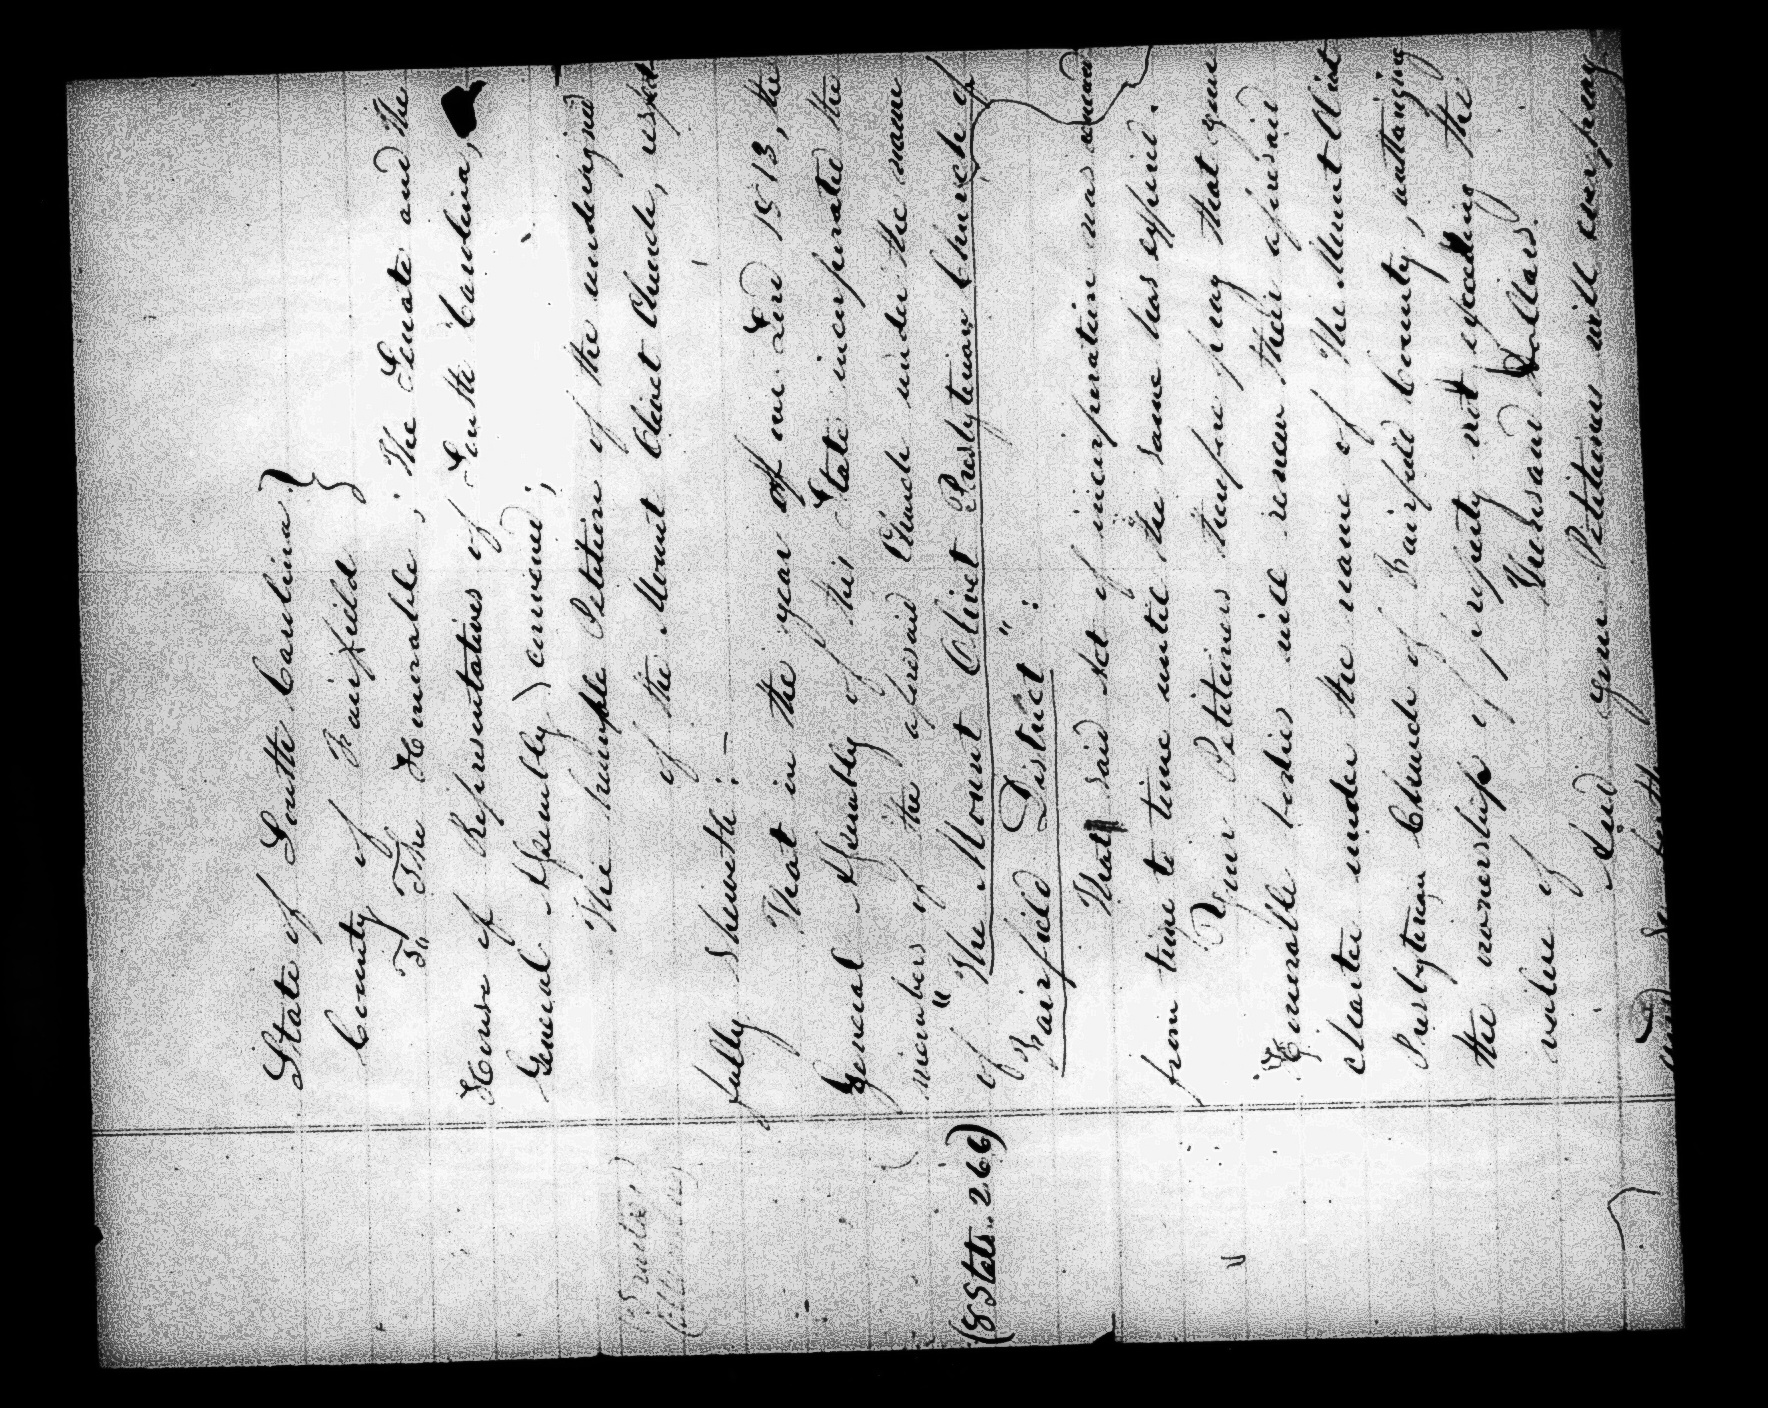 State of South Carolina }
County of Fairfield }
To The Honorable, The Senate and the
House of Representatives of South Carolina,
General Assembly convened;
The humble Petition of the undersigned
of the Mount Olivet Church, respect
fully sheweth: —
That in the year of our Lord 1813, the
General Assembly of this State incorporated the
members of the aforesaid Church under the name
(8 Stats. 266) of "The Mount Olivet Presbyterian Church of
Fairfield District":
That said Act of incorporation was renewed
from time to time until the same has expired.
Your Petitioners therefore pray that your
Honorable bodies will renew their aforesaid
charter under the name of The Mount Olivet
Presbyterian Church of Fairfield County,
the ownership of property not exceeding the
value of Thousand Dollars.
And your Petitioners will ever pray